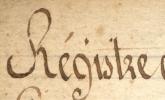 Régistre